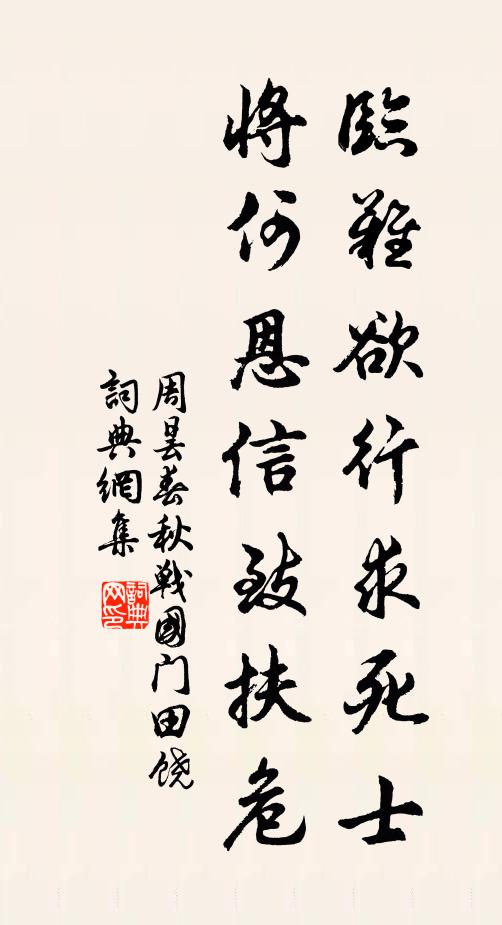 臨難欲行求死士
將何恩信致扶危
周昙春秋戰國门田饶
詞典網集
詞典网印